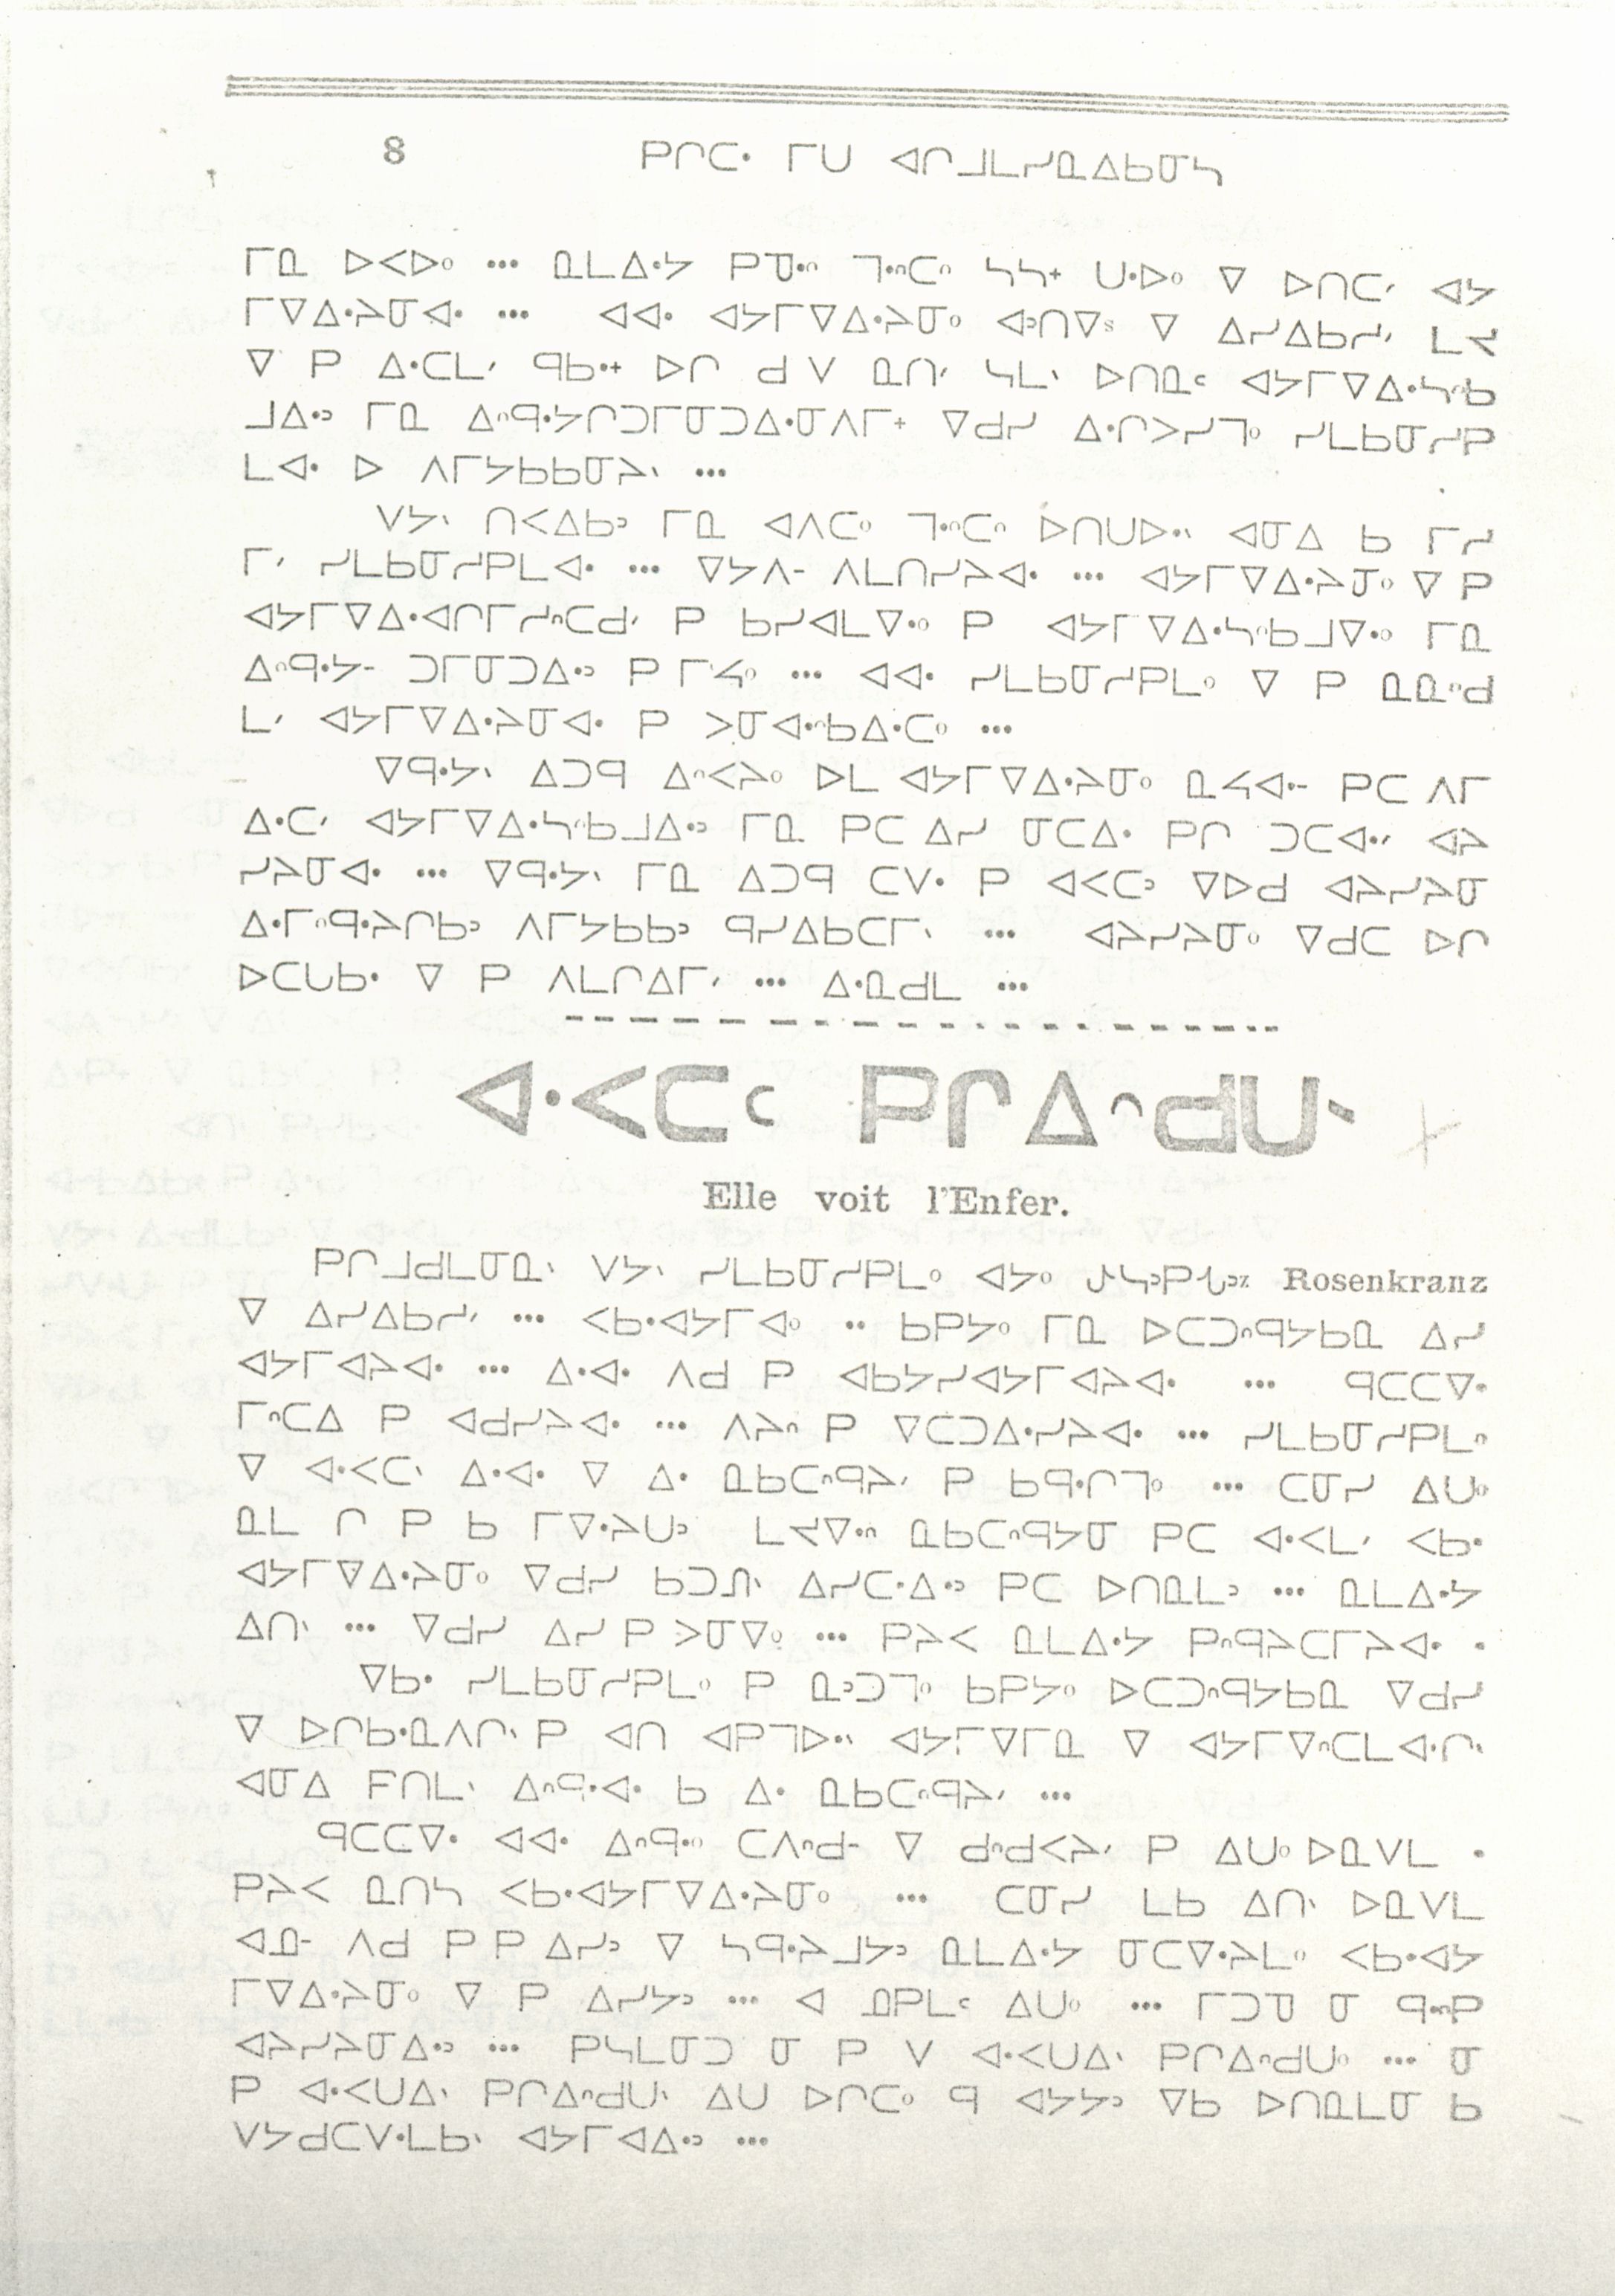 8 ᑭᒋᑕᐧ ᒥᑌ ᐊᒋᒧᒪᓯᓇᐃᑲᓂᓴ
ᒥᓇ ᐅᐸᐅᐧᐤ ... ᓇᒪᐃᐧᔭ ᑭᑯᐧᐢ ᒣᐧᐢᑕᐢ ᓴᓴᕀ ᑌᐧᐅᐤ ᐁ ᐅᑎᑕᐟ ᐊᔭ
ᒥᐁᐃᐧᔨᓂᐊᐧ ... ᐊᐊᐧ ᐊᔭᒥᐁᐃᐧᔨᓂᐤ ᐊᐣᑎᐁᔆ ᐁ ᐃᓯᐃᑲᓱᐟ ᒪᔪ
ᐁ ᑭ ᐃᐧᑕᒪᐟ ᑫᑲᐧᕀ ᐅᒋ ᑯ ᐯ ᓇᑎᐟ ᓴᒪᐠ ᐅᑎᓇᑦ ᐊᔭᒥᐁᐃᐧᓴᐢᑲ
ᒧᐃᐧᐣ ᒥᓇ ᐃᐢᑫᐧᔭᒋᑐᒥᓂᑐᐃᐧᓂᐱᒥᕀ ᐁᑯᓯ ᐃᐧᒋᐳᓯᒣᐤ ᓯᒪᑲᓂᓱᑭ
ᒪᐊᐧ ᐅ ᐱᒥᔭᑲᑲᓂᔨᐠ ...
ᐯᔭᐠ ᑎᐸᐃᑲᐣ ᒥᓇ ᐊᐱᑕᐤ ᒣᐧᐢᑕᐢ ᐅᑎᑌᐅᐧᐠ ᐊᓂᐃ ᑲ ᒥᓱ
ᒥᐟ ᓯᒪᑲᓂᓱᑭᒪᐊᐧ ... ᐁᔭᐱᐨ ᐱᒪᑎᓯᔨᐊᐧ ... ᐊᔭᒥᐁᐃᐧᔨᓂᐤ ᐁ ᑭ
ᐊᔭᒥᐁᐃᐧᐊᒋᒥᓱᐢᑕᑯᐟ ᑭ ᑲᓯᐊᒪᐁᐧᐤ ᑭ ᐊᔭᒥᐁᐃᐧᓴᐢᑲᒧᐁᐧᐤ ᒥᓇ
ᐃᐢᑫᐧᔭᐨ ᑐᒥᓂᑐᐃᐧᐣ ᑭ ᒥᔦᐤ ... ᐊᐊᐧ ᓯᒪᑲᓂᓱᑭᒪᐤ ᐁ ᑭ ᓇᓇᐢᑯ
ᒪᐟ ᐊᔭᒥᐁᐃᐧᔨᓂᐊᐧ ᑭ ᐳᓂᐊᐧᐢᑲᐃᐧᑕᐤ ...
ᐁᑫᐧᔭᐠ ᐃᑐᑫ ᐃᐢᐸᔨᐤ ᐅᒪ ᐊᔭᒥᐁᐃᐧᔨᓂᐤ ᓇᔦᐊᐧᐨ ᑭᑕ ᐱᒥ
ᐃᐧᑕᐟ ᐊᔭᒥᐁᐃᐧᓴᐢᑲᒧᐃᐧᐣ ᒥᓇ ᑭᑕ ᐃᓯ ᓂᑕᐃᐧ ᑭᒋ ᑐᑕᐊᐧᐟ ᐊᔨ
ᓯᔨᓂᐊᐧ ... ᐁᑫᐧᔭᐠ ᒥᓇ ᐃᑐᑫ ᑕᐯᐧ ᑭ ᐊᐸᑕᐣ ᐁᐅᑯ ᐊᔨᓯᔨᓂ
ᐃᐧᒥᐢᑫᐧᔨᒋᑲᐣ ᐱᒥᔭᑲᑲᐣ ᑫᓯᐃᑲᑕᒥᐠ ... ᐊᔨᓯᔨᓂᐤ ᐁᑯᑕ ᐅᒋ
ᐅᑕᑌᑲᐧ ᐁ ᑭ ᐱᒪᒋᐃᒥᐟ ... ᐃᐧᓇᑯᒪ ...
ᐊᐧᐸᑕᑦ ᑭᒋᐃᐢᑯᑌᐠ
Elle voit l'Enfer.
ᑭᒋᒧᑯᒪᓂᓇᐠ ᐯᔭᐠ ᓯᒪᑲᓂᓱᑭᒪᐤ ᐊᔭᐤ Rosenkranz
ᐁ ᐃᓯᐃᑲᓱᐟ ... ᐸᑲᐧᐊᔭᒥᐊᐤ .. ᑲᑭᔭᐤ ᒥᓇ ᐅᑕᑐᐢᑫᔭᑲᓇ ᐃᓯ
ᐊᔭᒥᐊᔨᐊᐧ ... ᐃᐧᐊᐧ ᐱᑯ ᑭ ᐊᑲᔭᓯᐊᔭᒥᐊᔨᐊᐧ ... ᑫᑕᑕᐁᐧ
ᒥᐢᑕᐃ ᑭ ᐊᑯᓯᔨᐊᐧ ... ᐱᔨᐢ ᑭ ᐁᑕᑐᐃᐧᓯᔨᐊᐧ ... ᓯᒪᑲᓂᓱᑭᒪᐤ
ᐁ ᐊᐧᐸᑕᐠ ᐃᐧᐊᐧ ᐁ ᐃᐧ ᓇᑲᑕᐢᑫᔨᐟ ᑭ ᑲᑫᐧᒋᒣᐤ ... ᑕᓂᓯ ᐃᑌᐤ
ᓇᒪ ᒋ ᑭ ᑲ ᒥᐁᐧᔨᑌᐣ ᒪᔪᐁᐧᐢ ᓇᑲᑕᐢᑫᔭᓂ ᑭᑕ ᐊᐧᐸᒪᐟ ᐸᑲᐧ
ᐊᔭᒥᐁᐃᐧᔨᓂᐤ ᐁᑯᓯ ᑲᑐᓕᐠ ᐃᓯᑕᐧᐃᐧᐣ ᑭᑕ ᐅᑎᓇᒪᐣ ... ᓇᒪᐃᐧᔭ
ᐃᑎᐠ ... ᐁᑯᓯ ᐃᓯ ᑭ ᐳᓂᐁᐤ ... ᑭᔨᐸ ᓇᒪᐃᐧᔭ ᑭᐢᑫᔨᑕᒥᔨᐊᐧ .
ᐁᑲᐧ ᓯᒪᑲᓂᓱᑭᒪᐤ ᑭ ᓇᐣᑐᒣᐤ ᑲᑭᔭᐤ ᐅᑕᑐᐢᑫᔭᑲᓇ ᐁᑯᓯ
ᐁ ᐅᒋᑲᐧᓇᐱᒋᐠ ᑭ ᐊᑎ ᐊᑭᒣᐅᐧᐠ ᐊᔭᒥᐁᒥᓇ ᐁ ᐊᔭᒥᐁᐢᑕᒪᐊᐧᒋᐠ
ᐊᓂᐃ ᒥᑎᒪᐠ ᐃᐢᑫᐧᐊᐧ ᑲ ᐃᐧ ᓇᑲᑕᐢᑫᔨᐟ ...
ᑫᑕᑕᐁᐧ ᐊᐊᐧ ᐃᐢᑫᐧᐤ ᑕᐱᐢᑯᐨ ᐁ ᑯᐢᑯᐸᔨᐟ ᑭ ᐃᑌᐤ ᐅᓇᐯᒪ .
ᑭᔨᐸ ᓇᑎᓴ ᐸᑲᐧᐊᔭᒥᐁᐃᐧᔨᓂᐤ ... ᑕᓂᓯ ᒪᑲ ᐃᑎᐠ ᐅᓇᐯᒪ
ᐊᓄᐨ ᐱᑯ ᑭ ᑭ ᐃᓯᐣ ᐁ ᓴᑫᐧᔨᒧᔭᐣ ᓇᒪᐃᐧᔭ ᓂᑕᐁᐧᔨᒪᐤ ᐸᑲᐧᐊᔭ
ᒥᐁᐃᐧᔨᓂᐤ ᐁ ᑭ ᐃᓯᔭᐣ ... ᐊ ᓄᑭᒪᑦ ᐃᑌᐤ ... ᒥᑐᓀ ᓂ ᑫᐧᐢᑭ
ᐊᔨᓯᔨᓂᐃᐧᐣ ... ᑭᓴᒪᓂᑐ ᓂ ᑭ ᐯ ᐊᐧᐸᑌᐃᐠ ᑭᒋᐃᐢᑯᑌᐤ ... ᓂ
ᑭ ᐊᐧᐸᑌᐃᐠ ᑭᒋᐃᐢᑯᑌᐠ ᐃᑌ ᐅᒋᑕᐤ ᑫ ᐊᔭᔭᐣ ᐁᑲ ᐅᑎᓇᒪᓂ ᑲ
ᐯᔭᑯᑕᐯᐧᒪᑲᐠ ᐊᔭᒥᐊᐃᐧᐣ ...